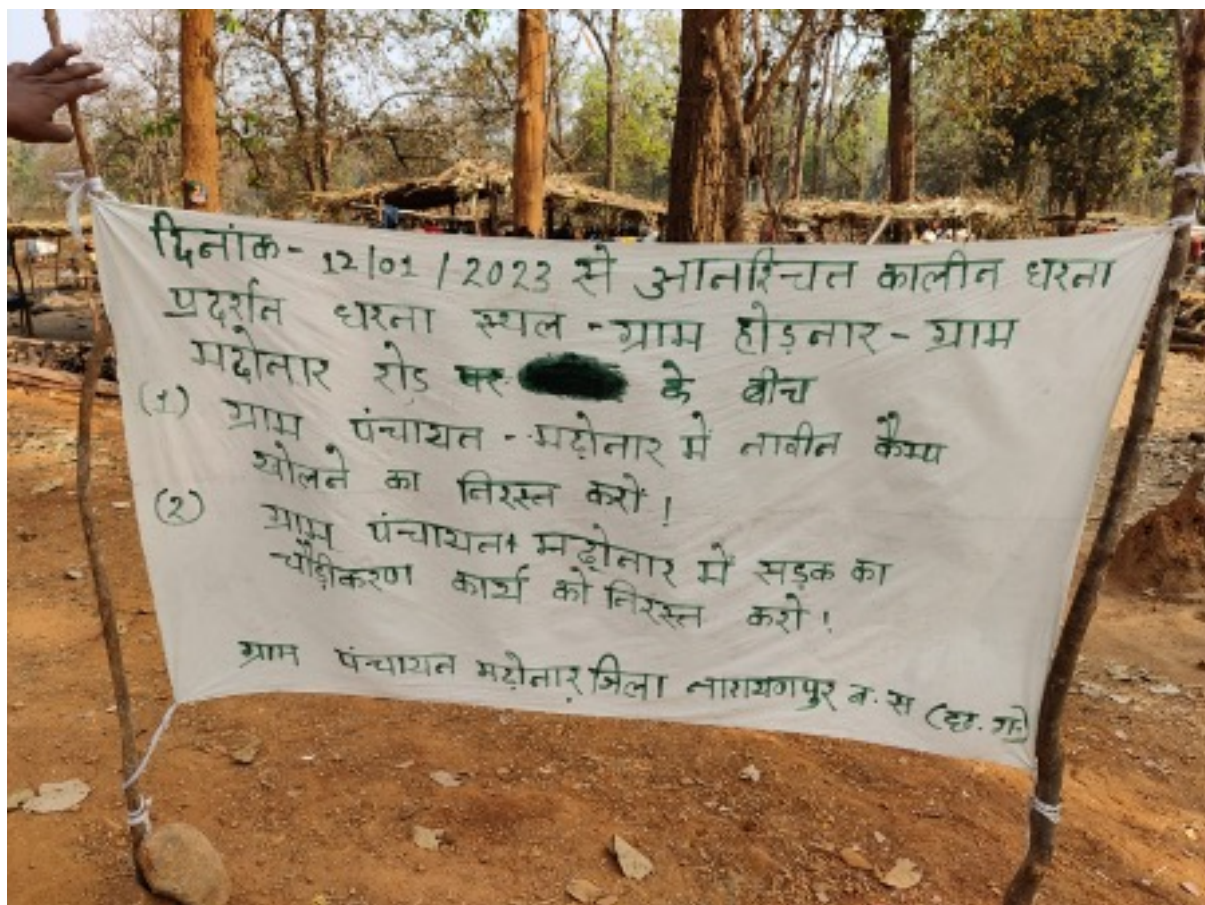 दिनांक - 12/01/2023 से आनिश्चित कालीन धरना
प्रदर्शन धरना स्थल - ग्राम होड़नार - ग्राम
मढ़ोनार रोड पर के बीच
(1) ग्राम पंचायत - मढ़ोनार में नावीन कैम्प
खोलने का निरस्त करों !
(2) ग्राम पंचायत मढ़ोनार में सड़क का
चौड़ीकरण कार्य को निरस्त करो !
ग्राम पंचायत मढ़ोनार जिला नारायणपुर ब. स (छ. ग.)